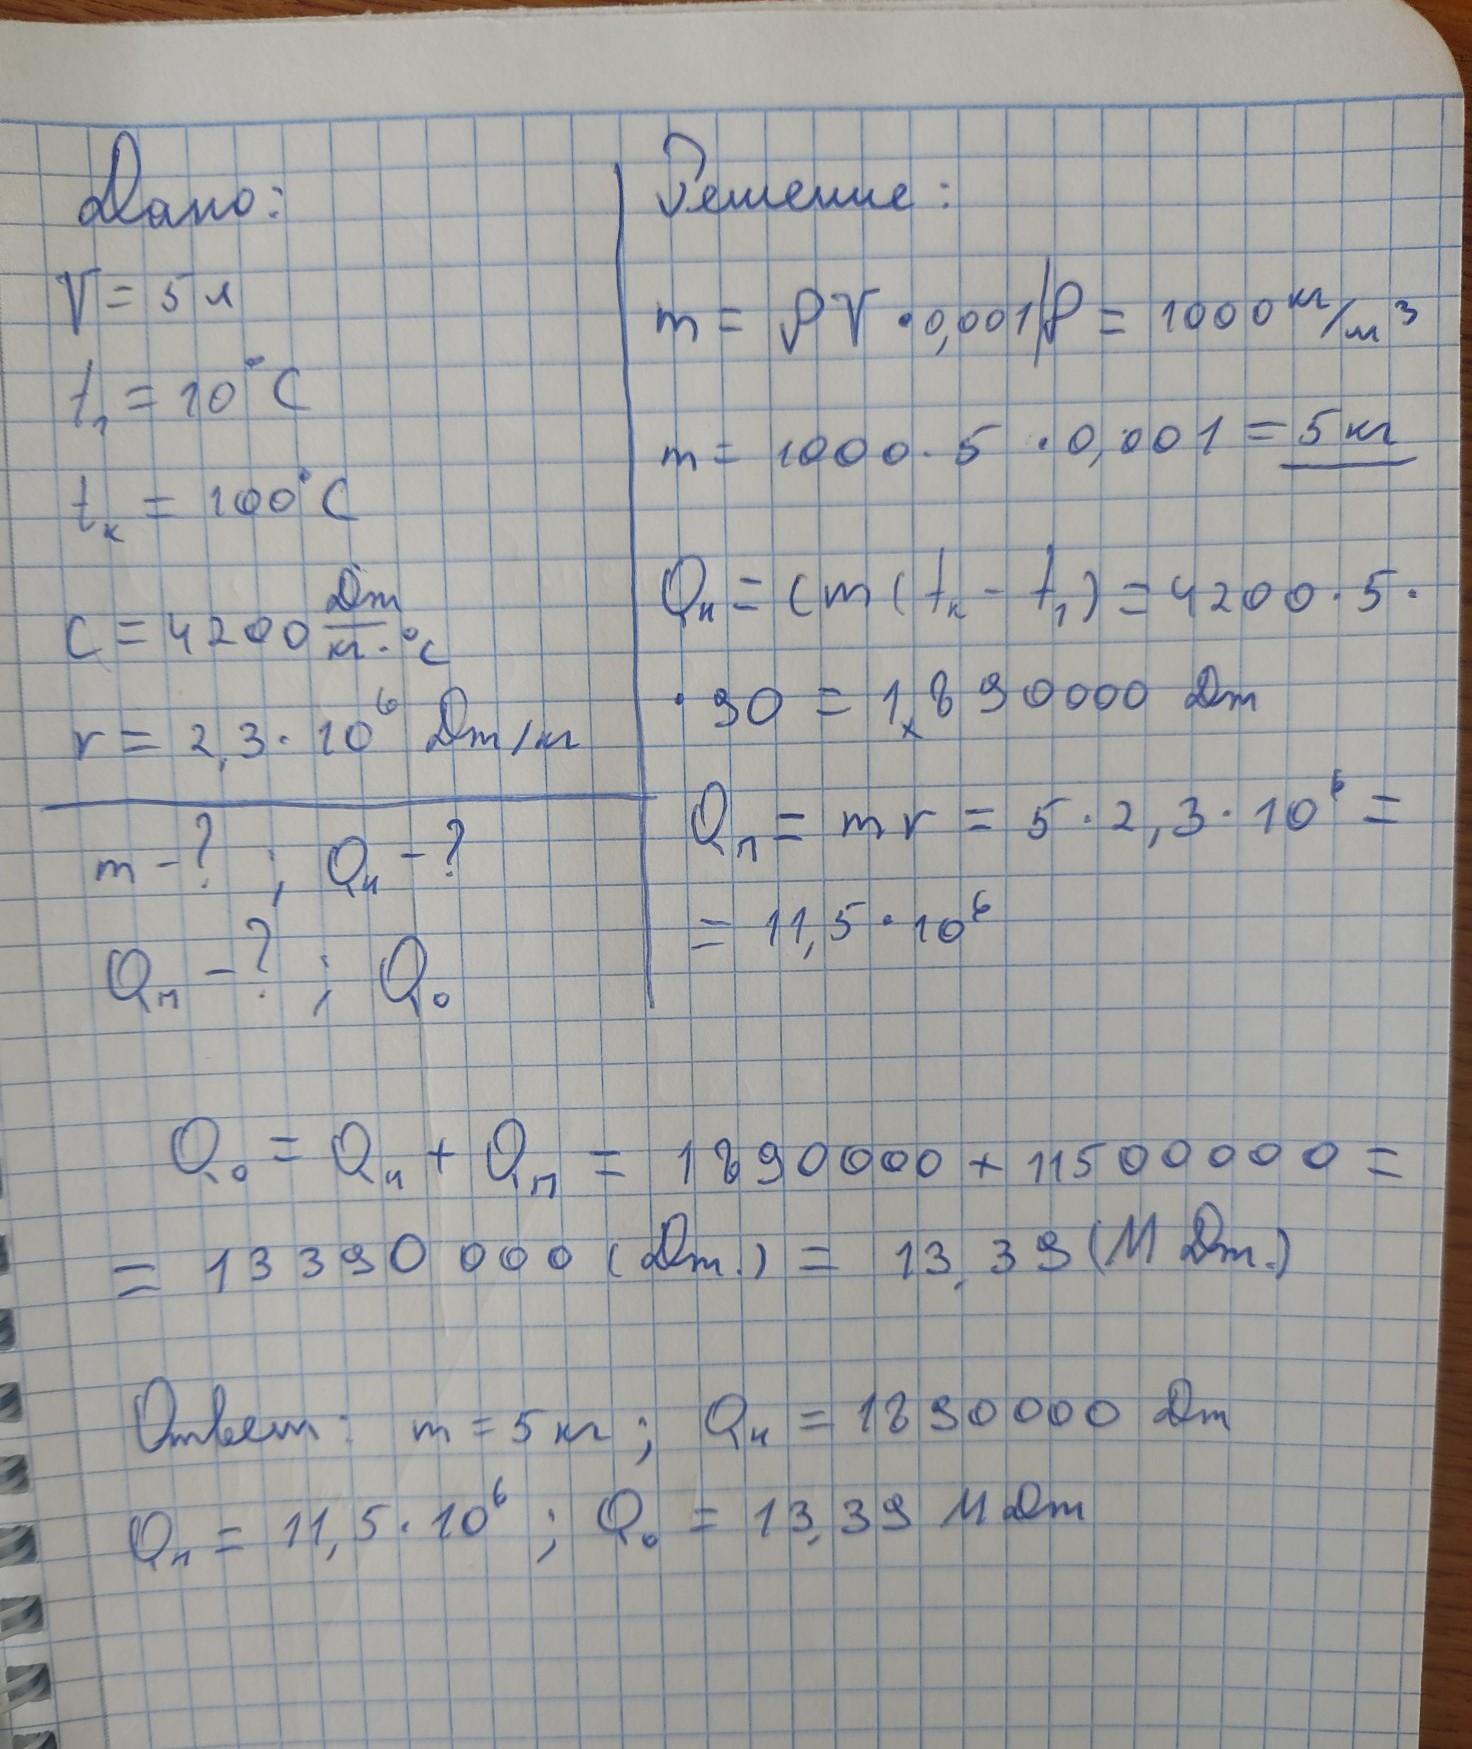 Дано:
V = 5 л
t₁ = 10°C
tₖ = 100°C
c = 4200 Дж/кг·°C
r = 2,3 · 10⁶ Дж/кг
m - ? ; Qн - ?
Qп - ? ; Q₀
Решение:
m = ρV · 0,001 | ρ = 1000 кг/м³
m = 1000 · 5 · 0,001 = 5 кг
Qн = cm(tₖ - t₁) = 4200 · 5 ·
· 90 = 1890000 Дж
Qп = mr = 5 · 2,3 · 10⁶ =
= 11,5 · 10⁶
Q₀ = Qн + Qп = 1890000 + 11500000 =
= 13390000 (Дж.) = 13,39 (М Дж.)
Ответ: m = 5 кг ; Qн = 1890000 Дж
Qп = 11,5 · 10⁶ ; Q₀ = 13,39 М Дж